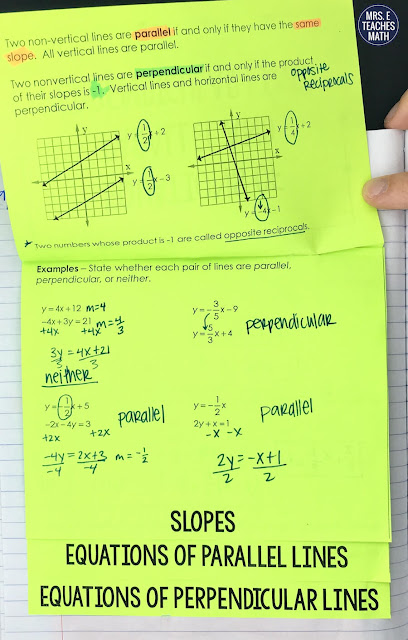 MRS. E
TEACHES
MATH
Two non-vertical lines are parallel if and only if they have the same
slope. All vertical lines are parallel.
Two nonvertical lines are perpendicular if and only if the product
of their slopes is -1. Vertical and horizontal lines are
perpendicular.
opposite
reciprocals
y
x
y = 1/2 x + 2
y = 1/2 x - 3
y
x
y = 1/4 x + 2
y = -4x - 1
* Two numbers whose product is -1 are called opposite reciprocals.
Examples – State whether each pair of lines are parallel,
perpendicular, or neither.
y = 4x + 12 m=4
-4x + 3y = 21 m=4/3
+4x +4x
3y = 4x+21
3 3
neither
y = -3/5 x - 9
y = 5/3 x + 4
perpendicular
y = -1/2 x + 5
-2x - 4y = 3
+2x +2x
parallel
-4y = 2x+3 m = -1/2
-4 -4
y = -1/2 x
2y + x = 1
-x -x
parallel
2y = -x+1
2 2
SLOPES
EQUATIONS OF PARALLEL LINES
EQUATIONS OF PERPENDICULAR LINES